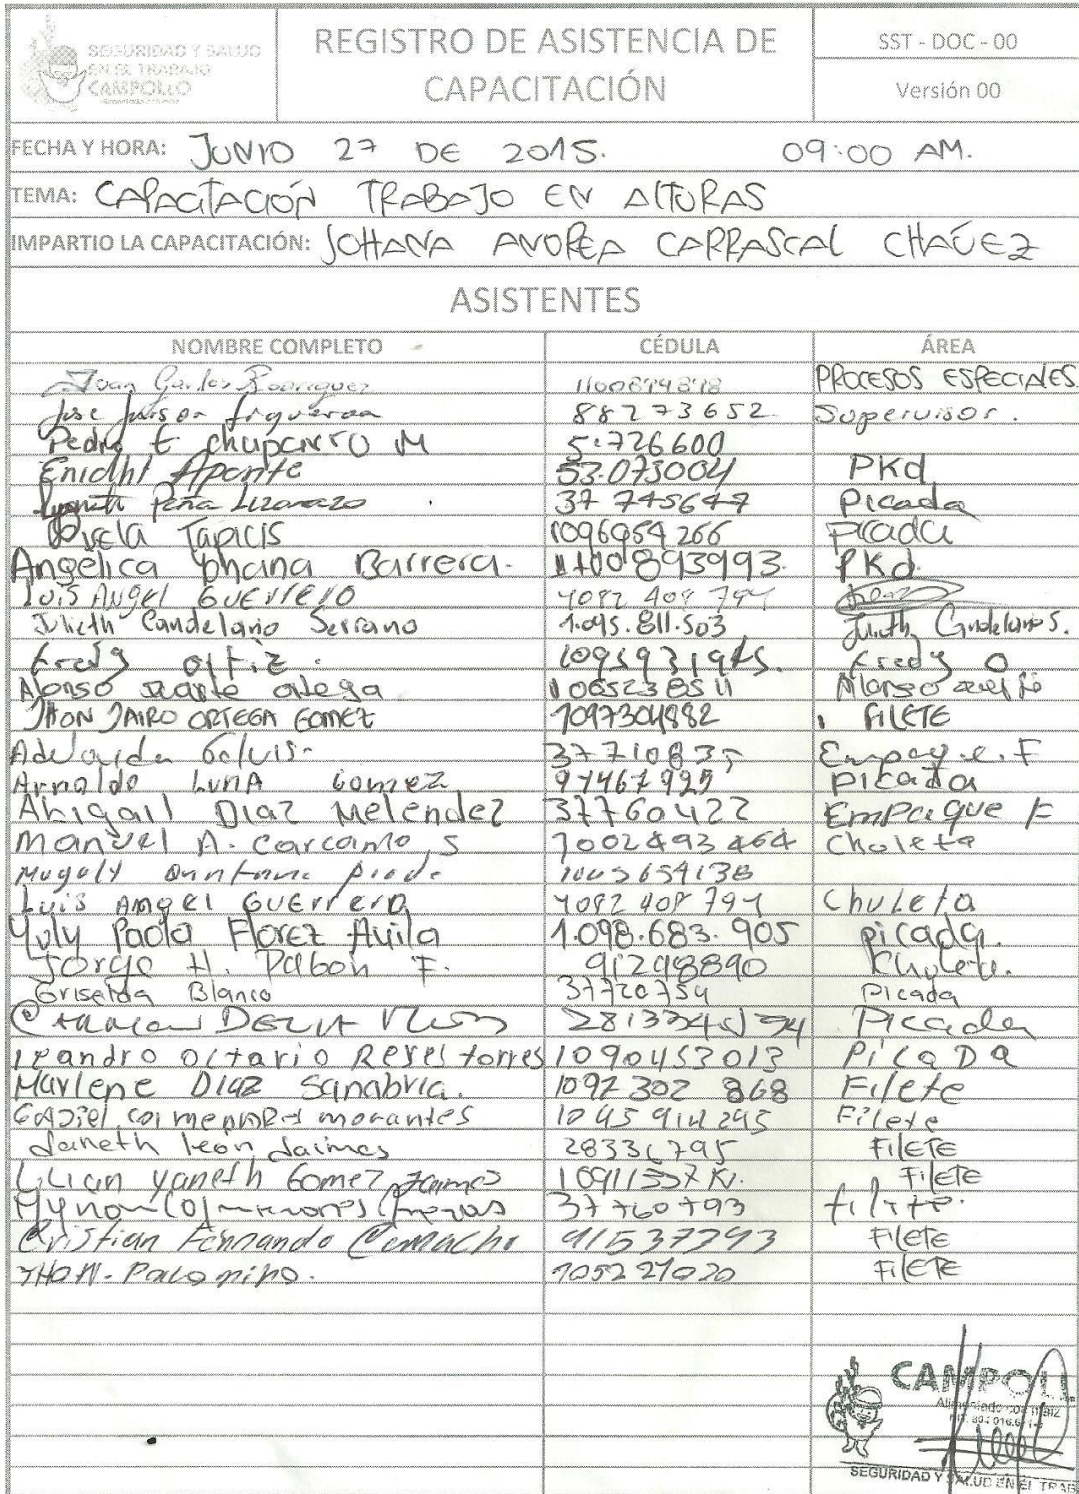 SEGURIDAD Y SALUD
EN EL TRABAJO
CAMPOLLO
REGISTRO DE ASISTENCIA DE
CAPACITACIÓN
SST - DOC - 00
Versión 00
FECHA Y HORA: JUNIO 27 DE 2015. 09:00 AM.
TEMA: CAPACITACIÓN TRABAJO EN ALTURAS
IMPARTIO LA CAPACITACIÓN: JOHANA ANDREA CARRASCAL CHAVEZ
ASISTENTES
NOMBRE COMPLETO CÉDULA ÁREA
Juan Carlos Rodriguez PROCESOS ESPECIALES
Jose 88273652 Supervisor.
Pedro E chaparro M 5.726600
Enidht Aponte 53.073004 PKd
Peña Lizarazo 37 745647 Picada
Tapias 1096954266 Picada
Angelica Johana Barrera. 1100893993 PKd
LUIS ANGEL GUERRERO 1092 408 794
Julieth Candelario Serrano 1.045.811.503 Julieth Candelario S.
Fredy ortiz. Fredy O
Alonso duarte ortega 1005238511 Alonso duarte
JHON JAIRO ORTEGA GOMEZ 1097304882 FILETE
Adelaida Galvis 37710835 Empaque. F
Arnaldo LUNA Gomez picada
Abigail Diaz Melendez 37760422 Empaque F
Manuel A. Carcamo S 1002493464 Chuleta
Magaly Quintana 1005654138
Luis AMGEl GUErrero 1092 408 794 Chuleta
Yuly Paola Florez Avila 1.098.683.905 picada.
Jorge H. Pabon F. 91298890 Chuleta.
Griselda Blanco 37720754 Picada
Picada
leandro octavio Reyes torres 1090453013 PiCaDa
Marlene Diaz Sanabria. 1097302 868 Filete
morantes 1045914245 Filete
Janeth leon Jaimes FILETE
Lilian yaneth Gomez Jaimes FILETE
37760793 filete.
Cristian Fernando Camacho 91537793 FILETE
JHON. Palomino. FILETE
CAMPOLL
Alimentado con maiz
SEGURIDAD Y SALUD EN EL TRAB